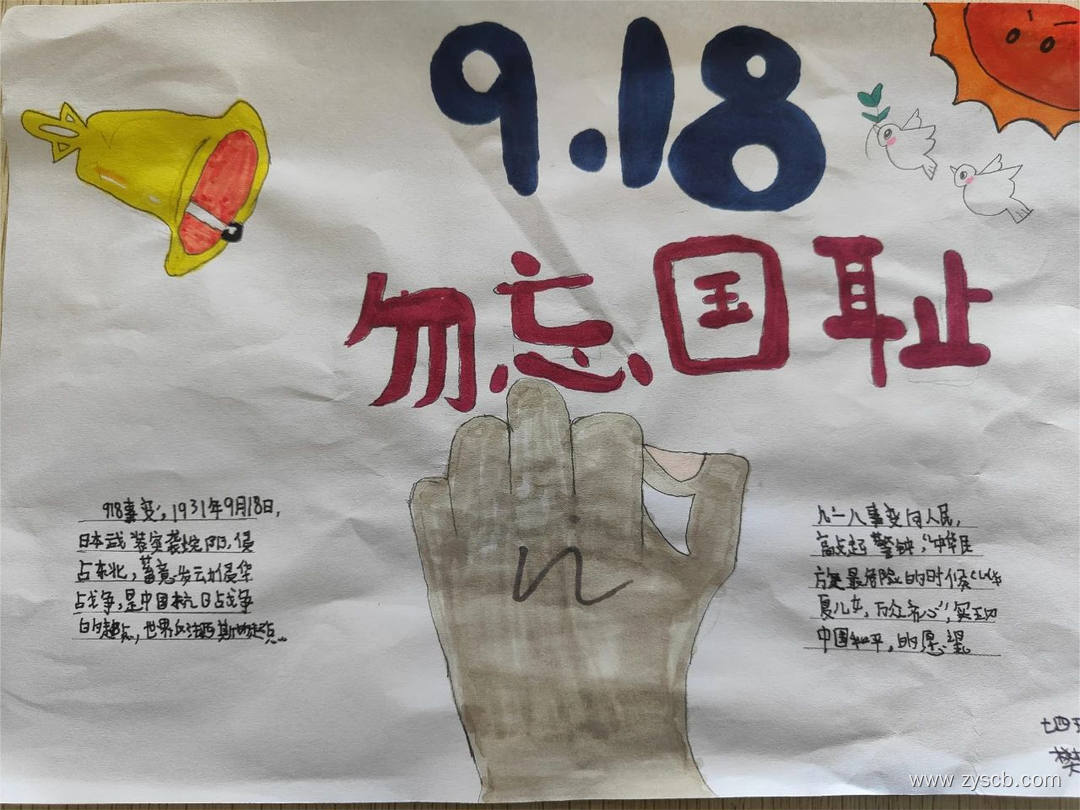 9.18
勿忘国耻
918事变,1931年9月18日,
日本武装突袭沈阳,侵
占东北,蓄意发动侵华
战争,是中国抗日战争
的起点,世界反法西斯的起点。
九一八事变向人民,
高战起警钟,"中华民
族最危险的时候""华
夏儿女,万众齐心",实现
中国和平,的愿望
七四
樊
www.zyscb.com